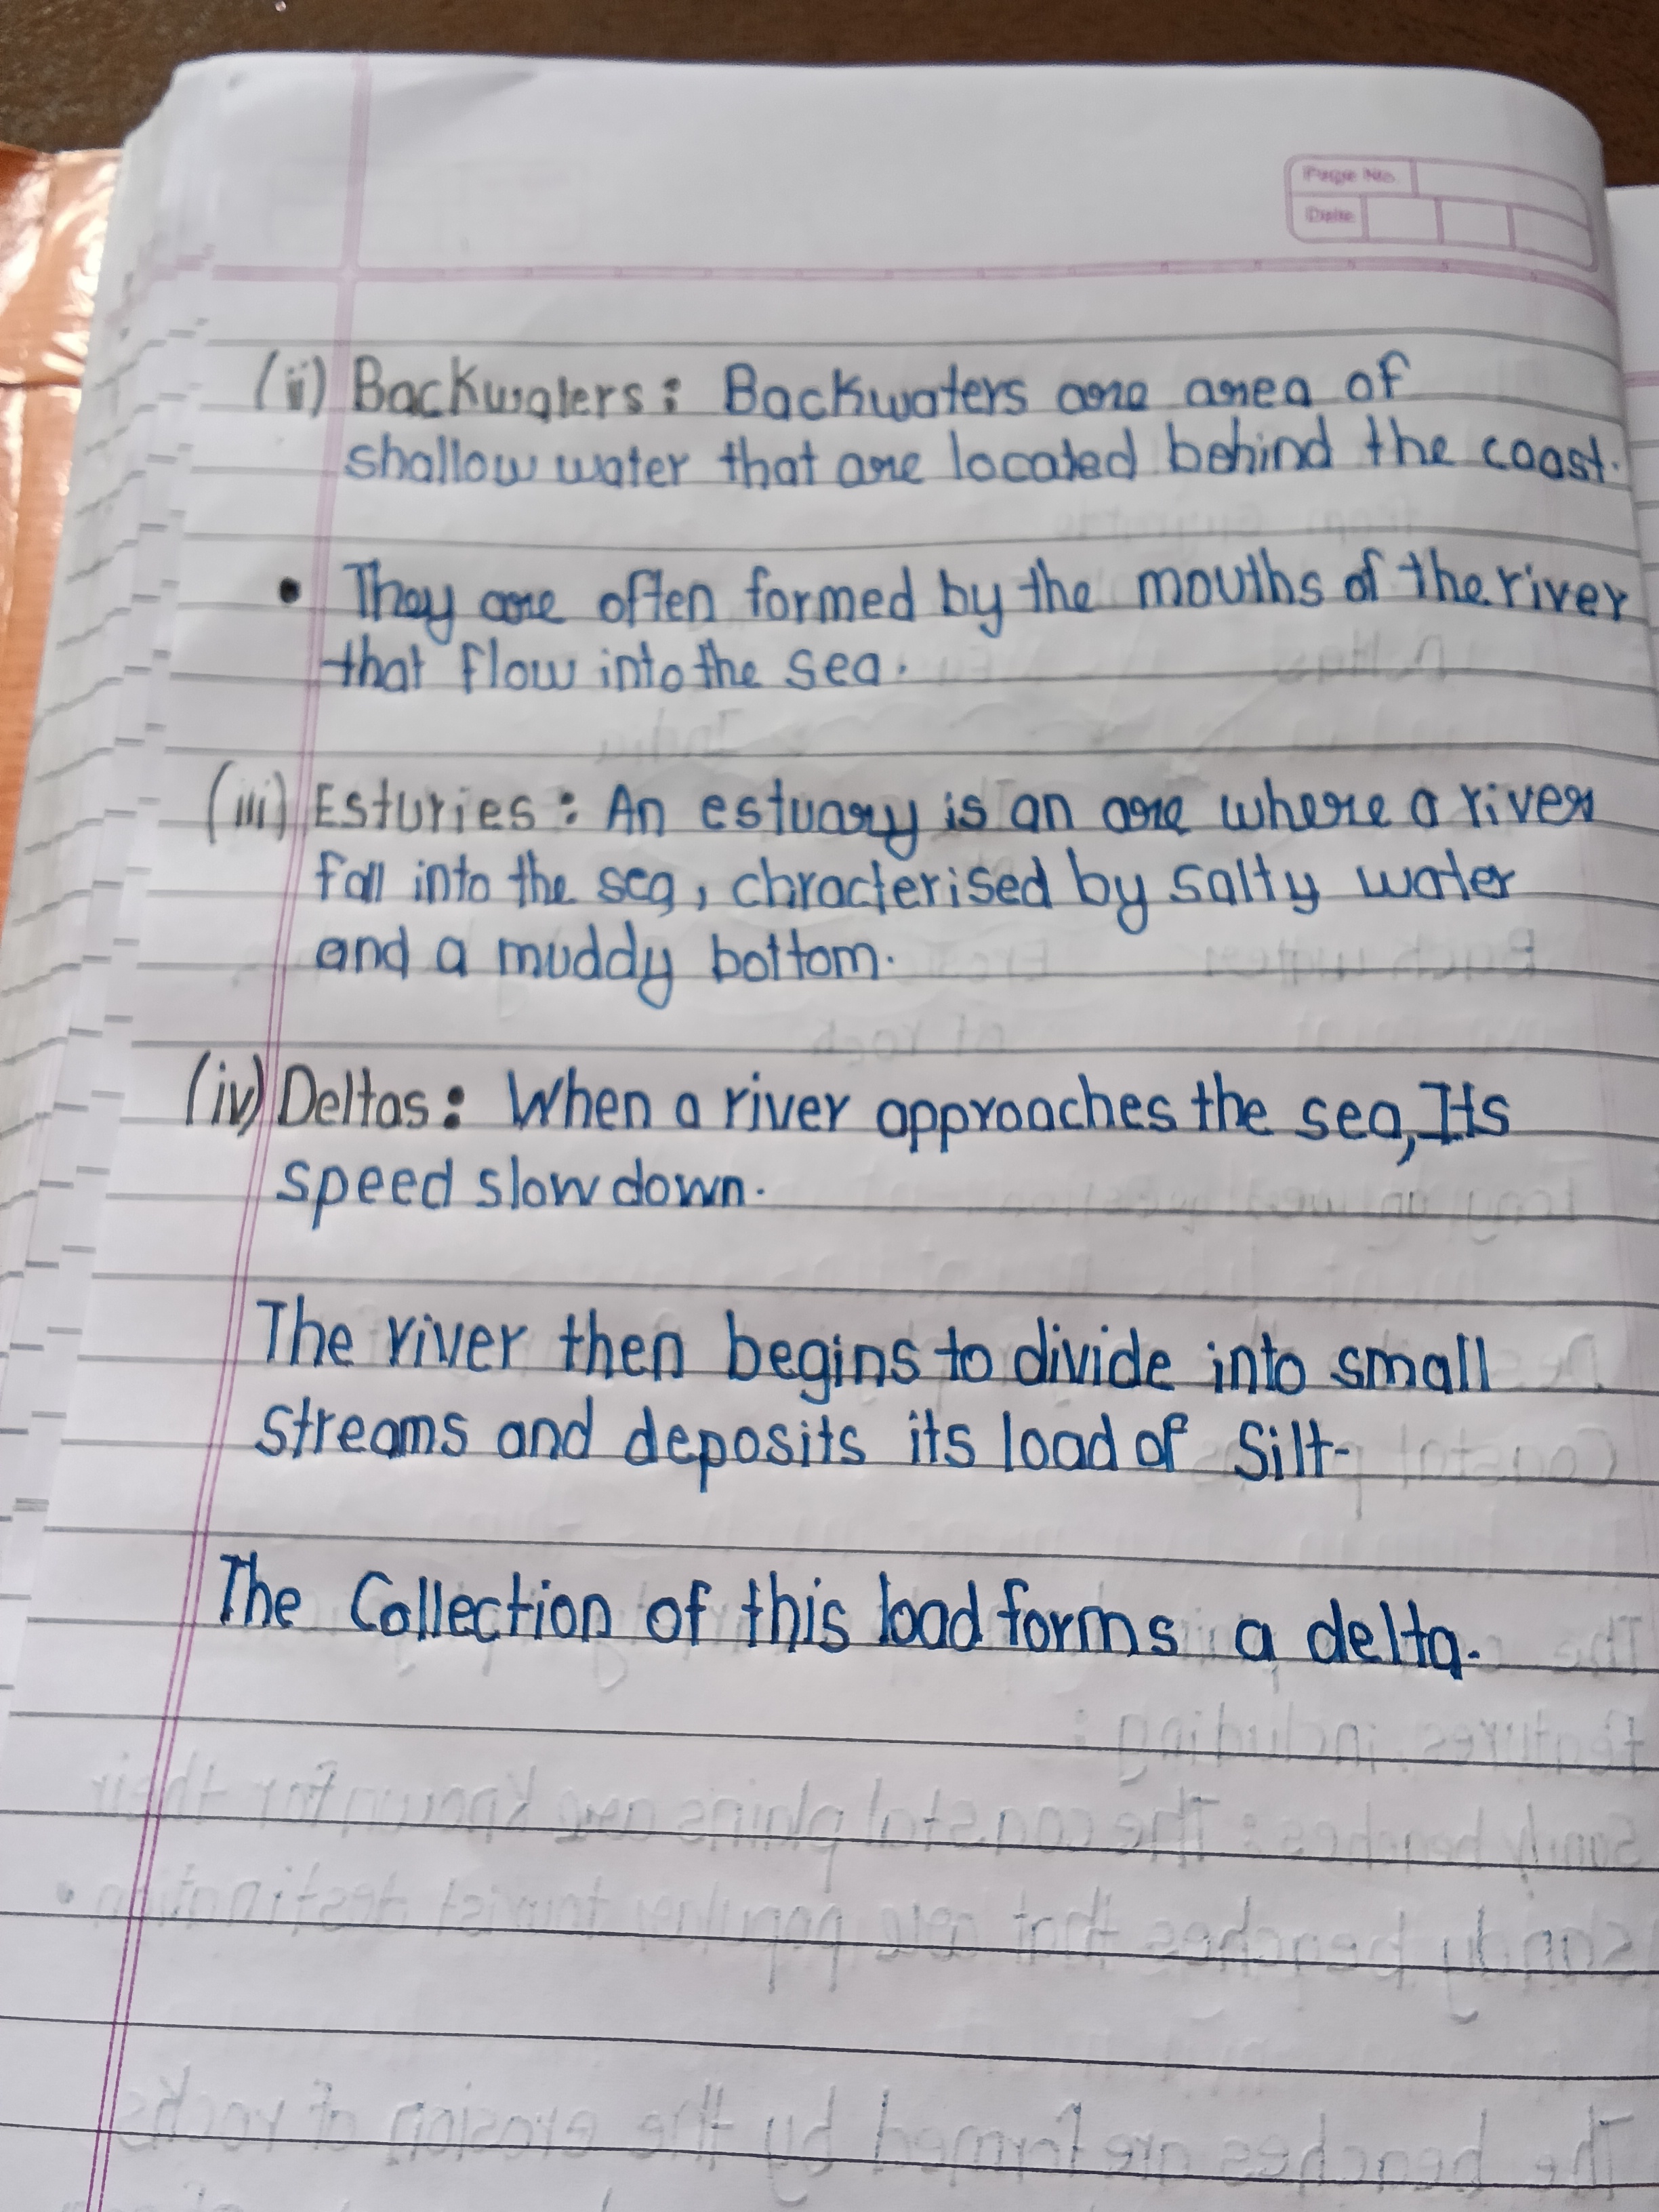 Page No.
Date
(ii) Backwaters: Backwaters are area of
shallow water that are located behind the coast.
• They are often formed by the mouths of the river
that flow into the sea.
(iii) Esturies: An estuary is an are where a river
fall into the sea, chracterised by salty water
and a muddy bottom.
(iv) Deltas: When a river approaches the sea, Its
speed slow down.
The river then begins to divide into small
streams and deposits its load of Silt-
The Collection of this load forms a delta.